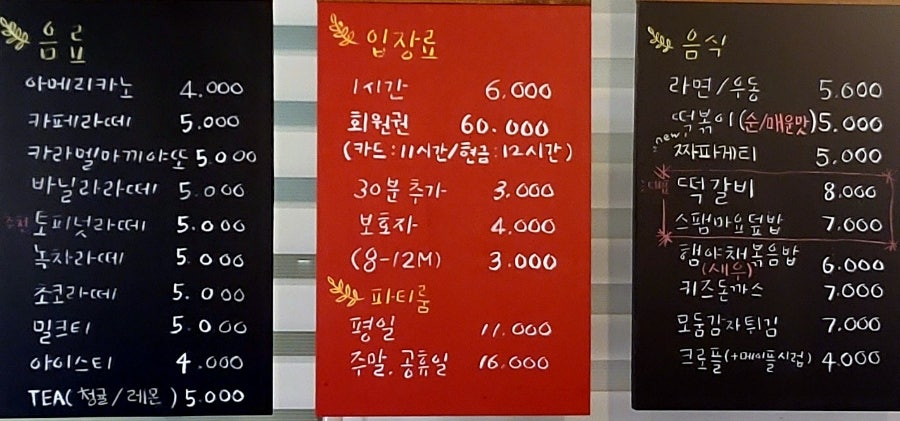 음료
아메리카노 4.000
카페라떼 5.000
카라멜마끼야또 5.000
바닐라라떼 5.000
추천 토피넛라떼 5.000
녹차라떼 5.000
초코라떼 5.000
밀크티 5.000
아이스티 4.000
TEA(청귤/레몬) 5.000
입장료
1시간 6.000
회원권 60.000
(카드:11시간/현금:12시간)
30분추가 3.000
보호자 4.000
(8-12M) 3.000
파티룸
평일 11.000
주말.공휴일 16.000
음식
라면/우동 5.000
떡볶이(순/매운맛) 5.000
new 짜파게티 5.000
떡갈비 8.000
스팸마요덮밥 7.000
햄야채볶음밥 6.000
(새우)
키즈돈까스 7.000
모둠감자튀김 7.000
크로플(+메이플시럽) 4.000